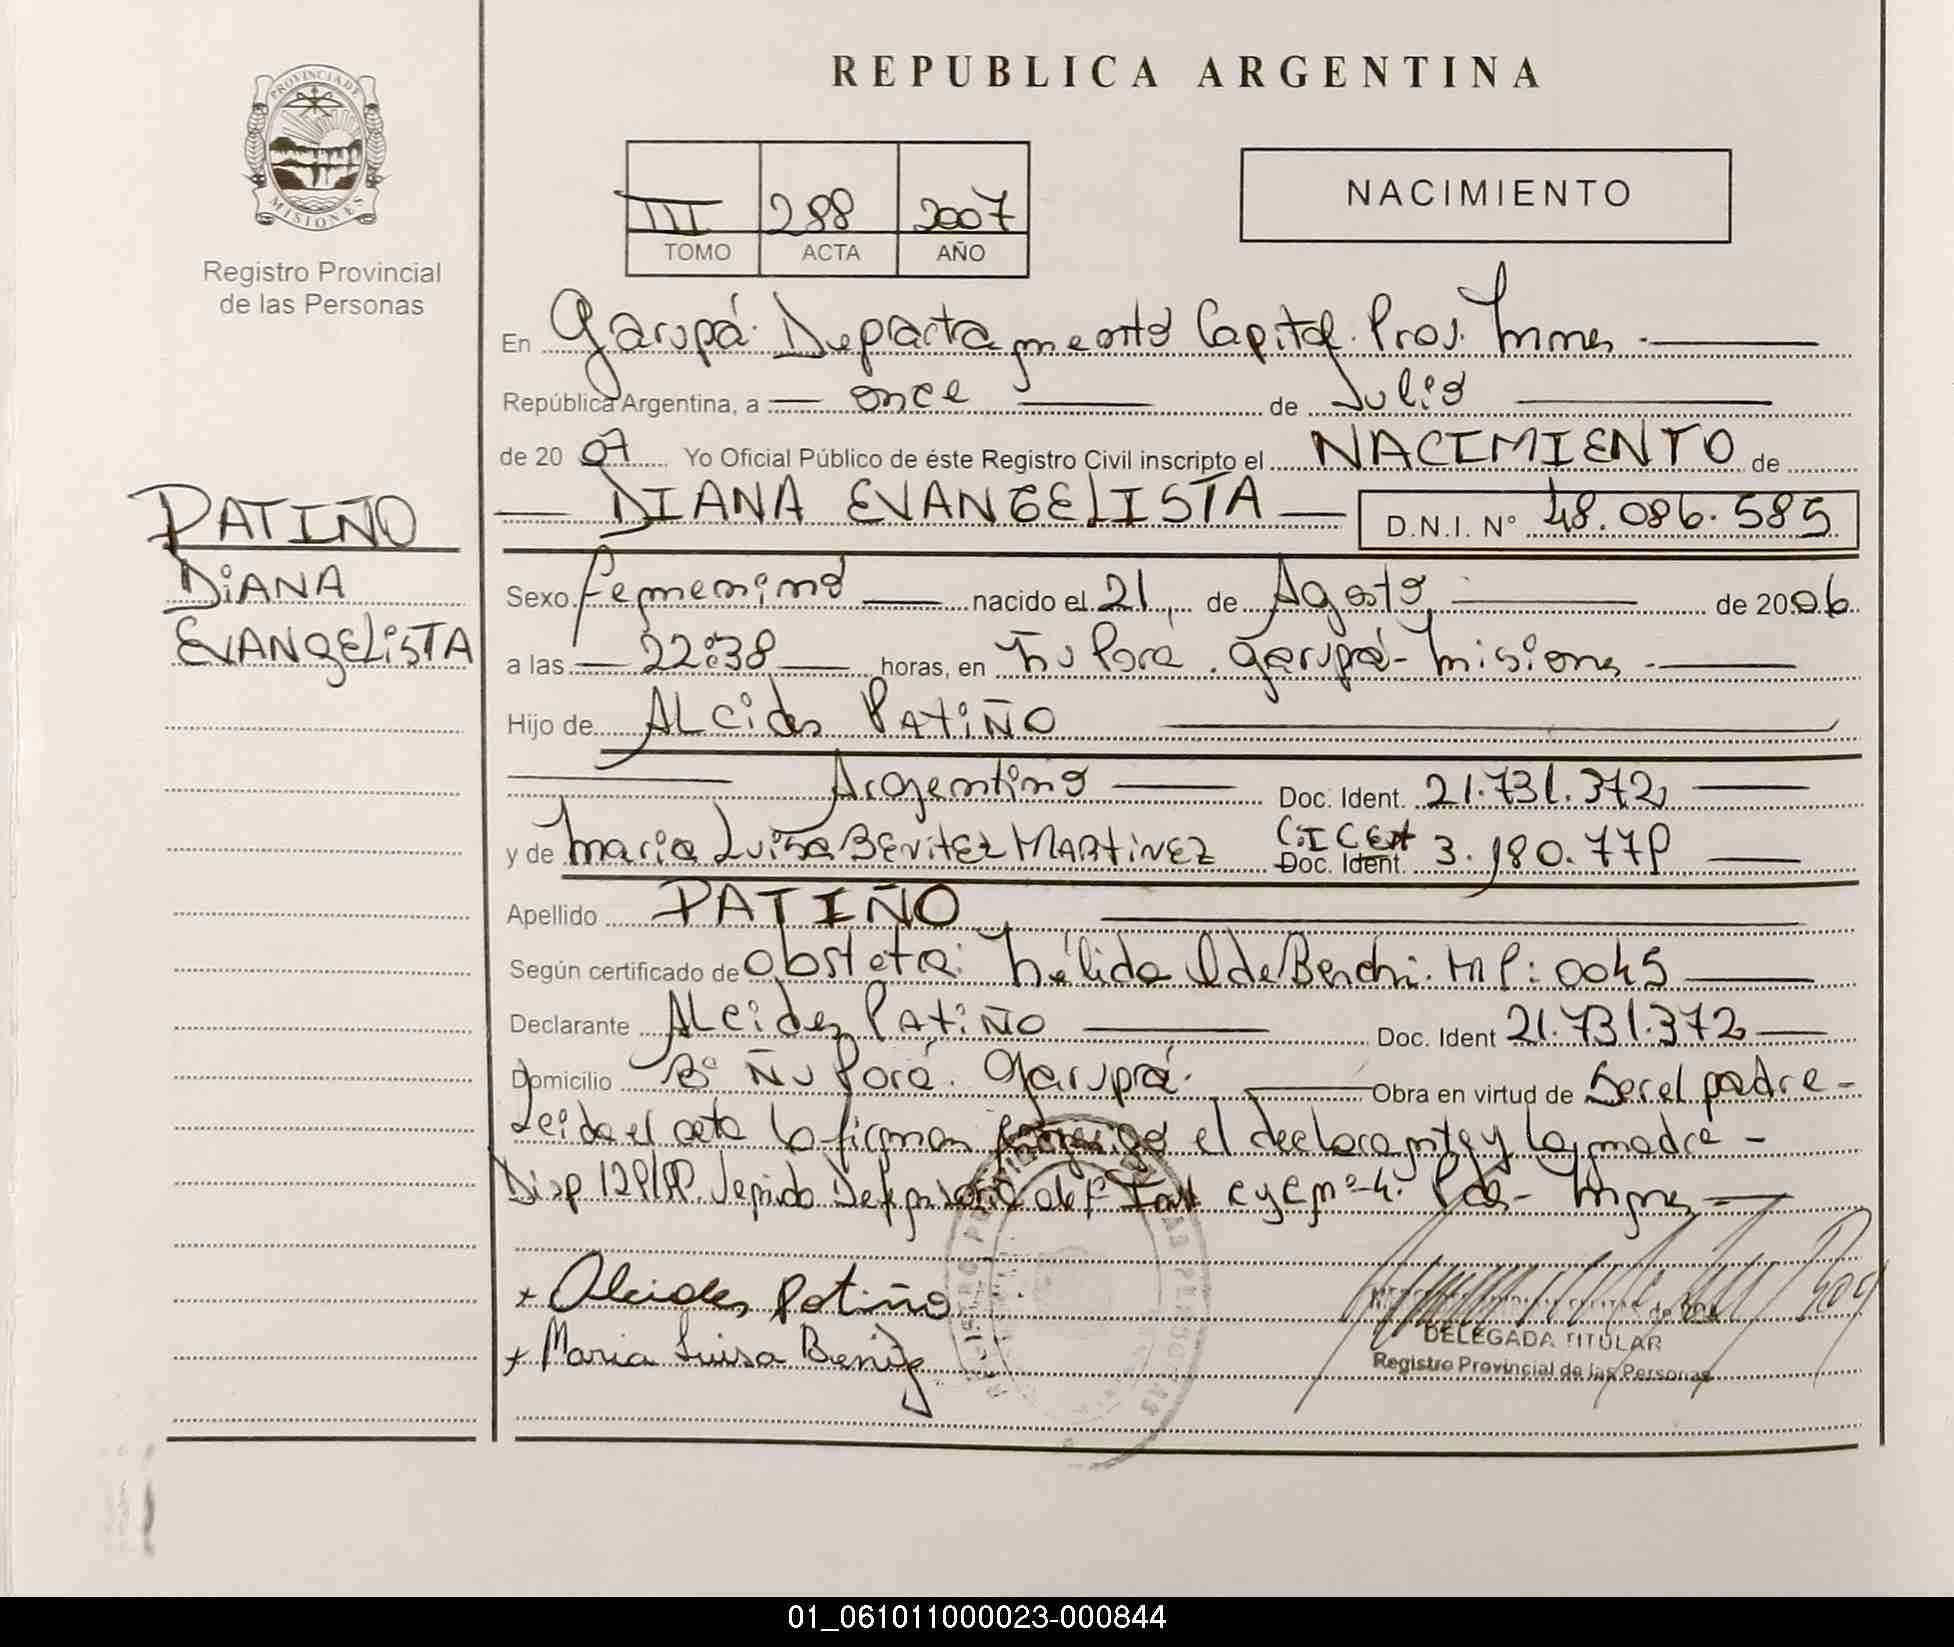 REPUBLICA ARGENTINA
PROVINCIA DE
MISIONES
Registro Provincial
de las Personas
III 288 2007
TOMO ACTA AÑO
NACIMIENTO
En Garupá. Departamento Capital. Prov. Mnes
República Argentina, a once de Julio
de 2007 Yo Oficial Público de éste Registro Civil inscripto el NACIMIENTO de
DIANA EVANGELISTA D.N.I. N° 48.086.585
PATIÑO
DiANA
EVANgELiSTA
Sexo femenino nacido el 21 de Agosto de 2006
a las 22:38 horas, en Ñu Porá. Garupá - Misiones
Hijo de ALcides PAtiÑO
Argentino Doc. Ident. 21.731.372
y de Maria Luisa BENitEZ MARtiNEZ C.I C Ext Doc. Ident. 3.180.779
Apellido PATIÑO
Según certificado de Obstetra: Nélida de Berchi. MP: 0045
Declarante ALcides PAtiÑO Doc. Ident 21.731.372
Domicilio B° Ñu Porá. Garupá. Obra en virtud de Ser el padre -
Leida el acta la firman conmigo el declarante y la madre -
Disp 129/99. Defensoria de Inst
+ Alcides Patiño
+ Maria Luisa Benitez
DELEGADA TITULAR
Registro Provincial de las Personas
01_061011000023-000844